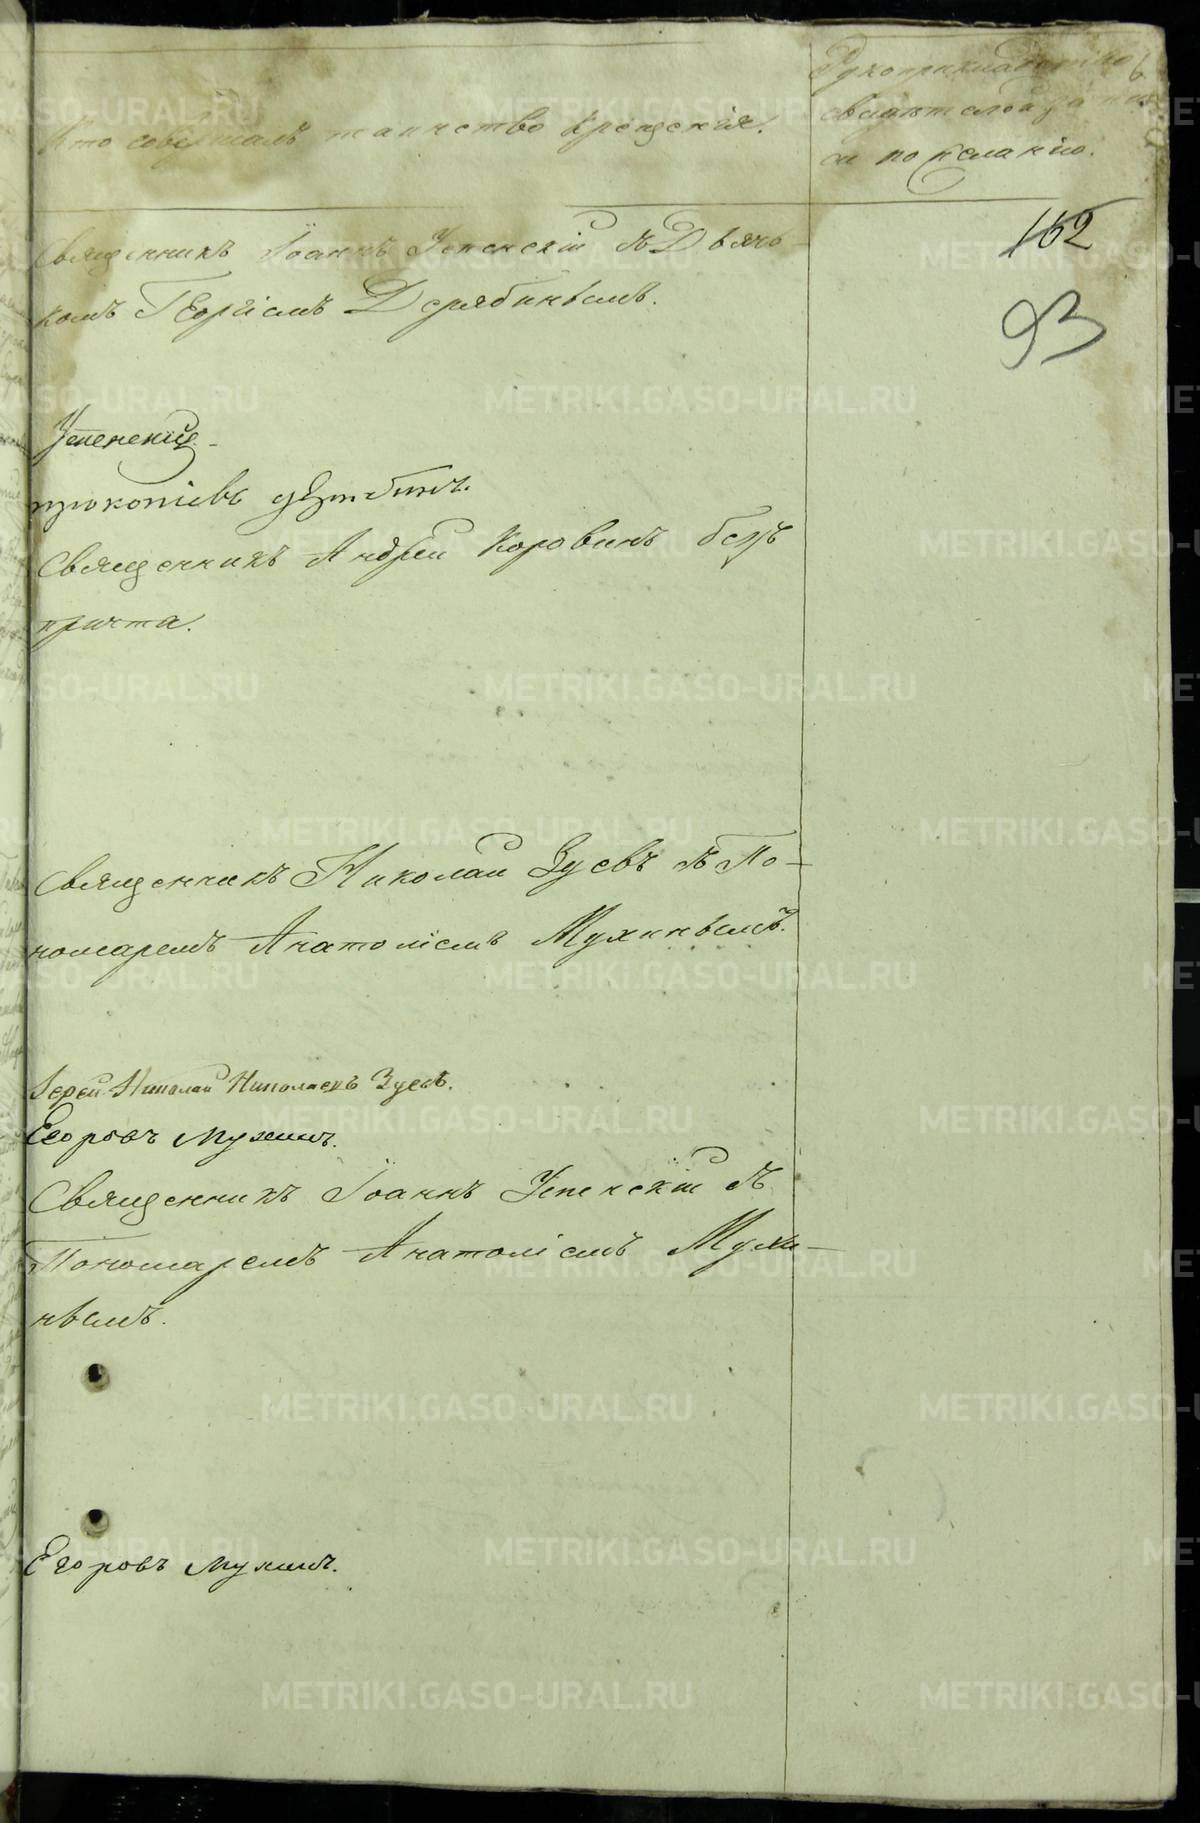 Кто совершалъ таинство крещенія.
Рукоприкладство
свидѣтелей запи-
си по желанію.
162
93
Священникъ Іоаннъ Успенскій съ Дьяч-
комъ Георгіемъ Дерябинымъ.
Успенскій
прокопіевъ дерябинъ.
Священникъ Андрей Коровинъ безъ
причта.
Священникъ Николай Зуевъ съ По-
номаремъ Анатоліемъ Мухинымъ.
Іерей Николай Николаевъ Зуевъ.
Егоровъ Мухинъ.
Священникъ Іоаннъ Успенскій съ
Пономаремъ Анатоліемъ Мухи-
нымъ.
Егоровъ Мухинъ.
METRIKI.GASO-URAL.RU